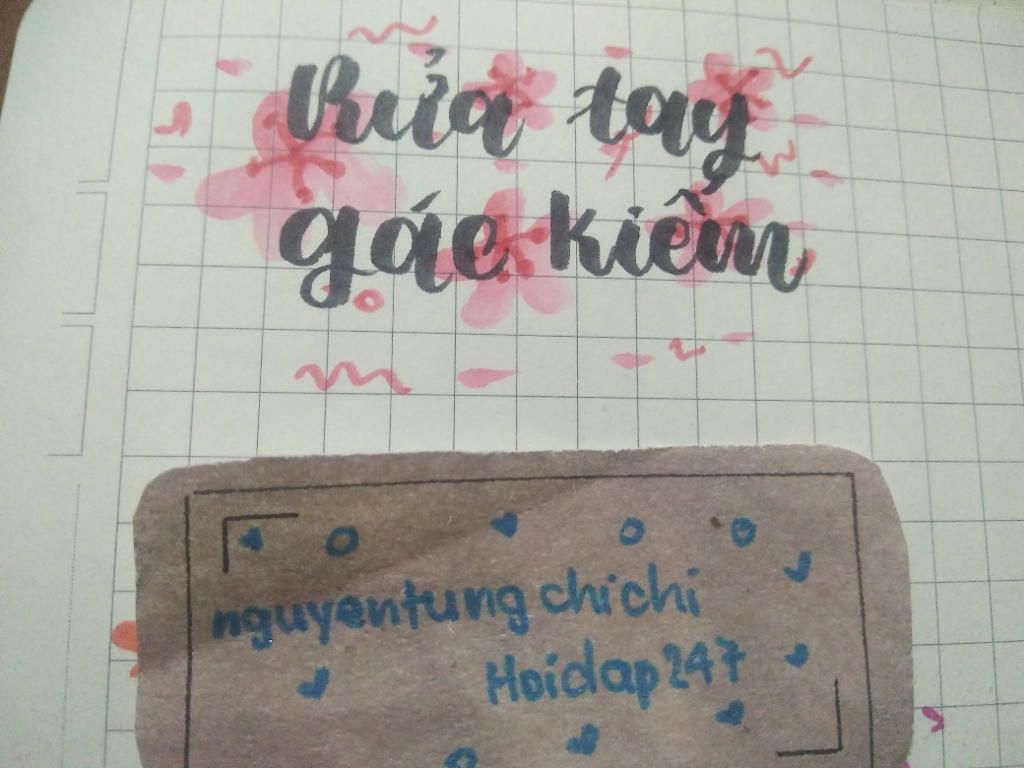 Rửa tay
gác kiếm
nguyentung chichi
Hoidap247